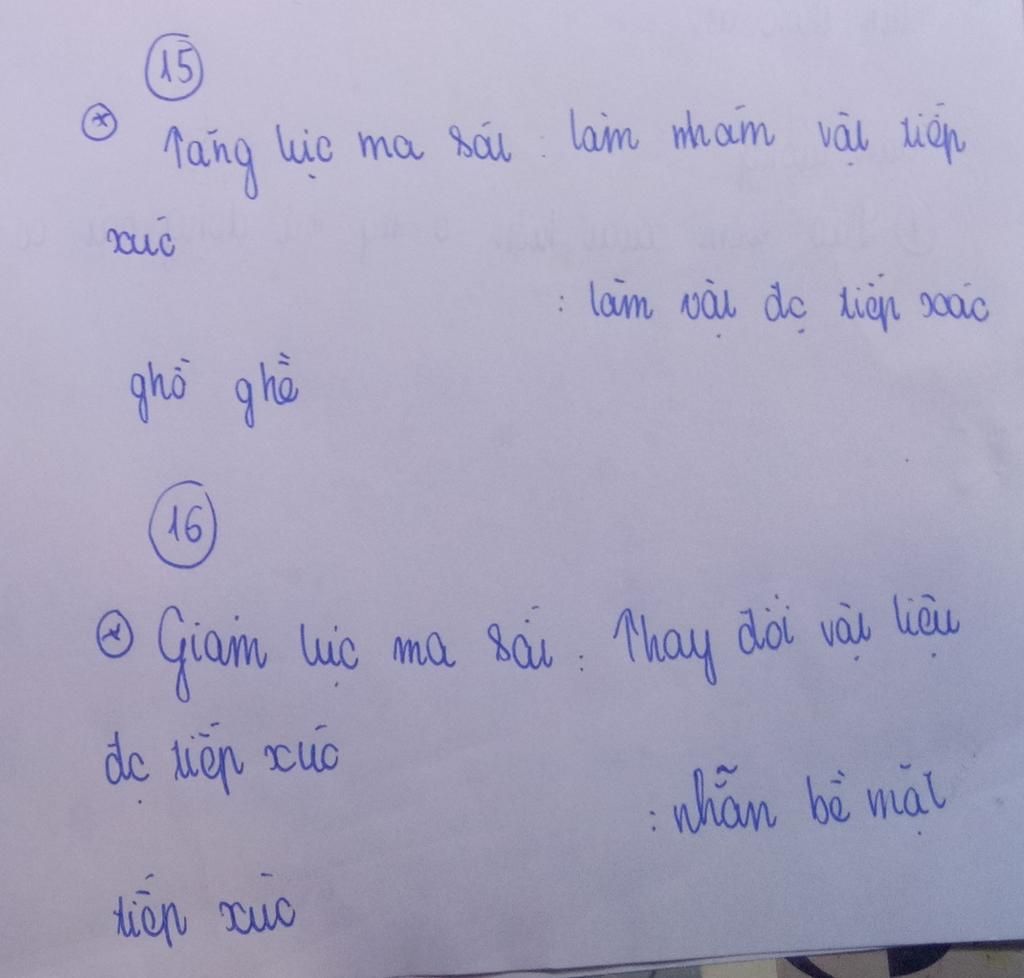 15
* Tăng lực ma sát : làm nhám vật tiếp
xúc
: làm vật đc tiếp xác
ghồ ghề
16
* Giảm lực ma sát : Thay đổi vật liệu
đc tiếp xúc
: nhẵn bề mặt
tiếp xúc